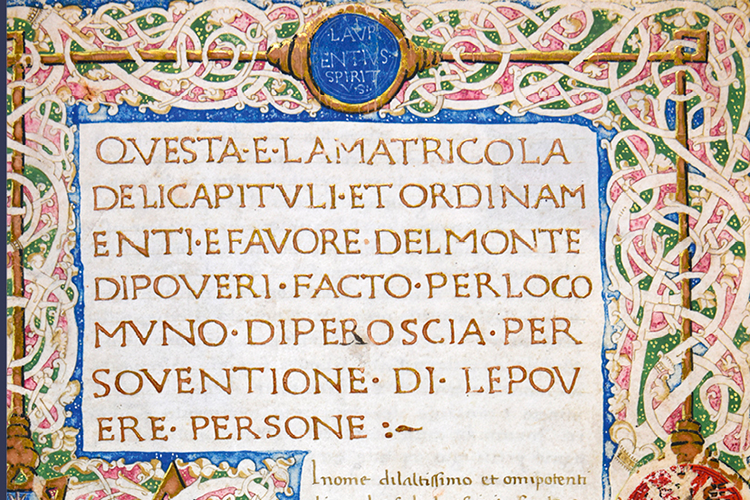 ·LAVR
ENTIVS·
SPIRIT
VS·
QVESTA·E·LAMATRICOLA
DELICAPITVLI·ET ORDINAM
ENTI·EFAVORE·DELMONTE
DIPOVERI·FACTO·PERLOCO
MVNO·DIPEROSCIA·PER
SOVENTIONE·DI·LEPOV
ERE·PERSONE :~
Inome dilaltissimo et omnipotenti